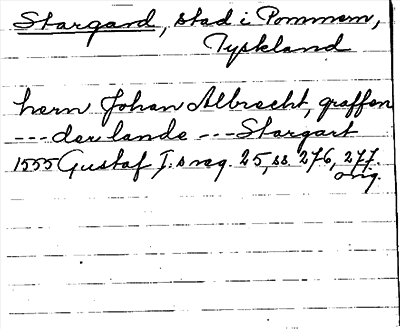 Stargard, stad i Pommern,
Tyskland
hern Johan Albrecht, graffen
--- der lande --- Stargart
1555 Gustaf I:s reg. 25, ss. 276, 277.
orig.